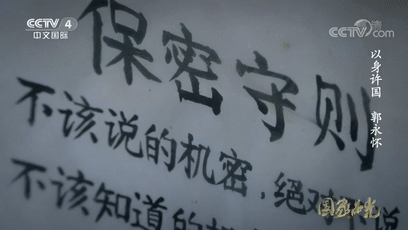 CCTV 4
中文国际
CCTV.com
以身许国 郭永怀
保密守则
不该说的机密，绝对不说
不该知道的机
国家记忆